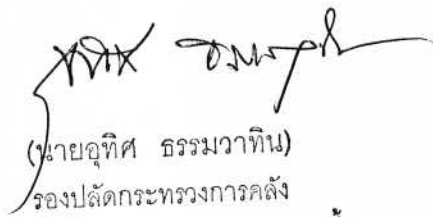 (นายอุทิศ ธรรมวาทิน)
รองปลัดกระทรวงการคลัง